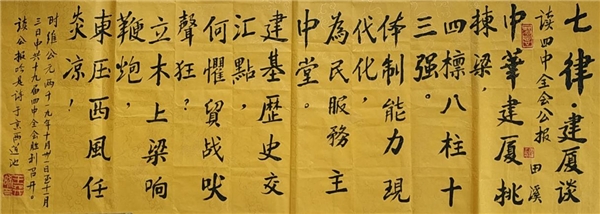 七律·建厦谈
读四中全会公报 田溪
中华建厦挑
棟梁，
四檩八柱十
三强。
体制能力現
代化，
為民服務主
中堂。
建基歷史交
汇點，
何懼貿战吠
聲狂？
立木上梁响
鞭炮，
東压西風任
炎凉！
时维公元两十一九年十月廿一日至十一月
三日中共十九届四中全会胜利召开。
读公报吟是诗于京西莲池